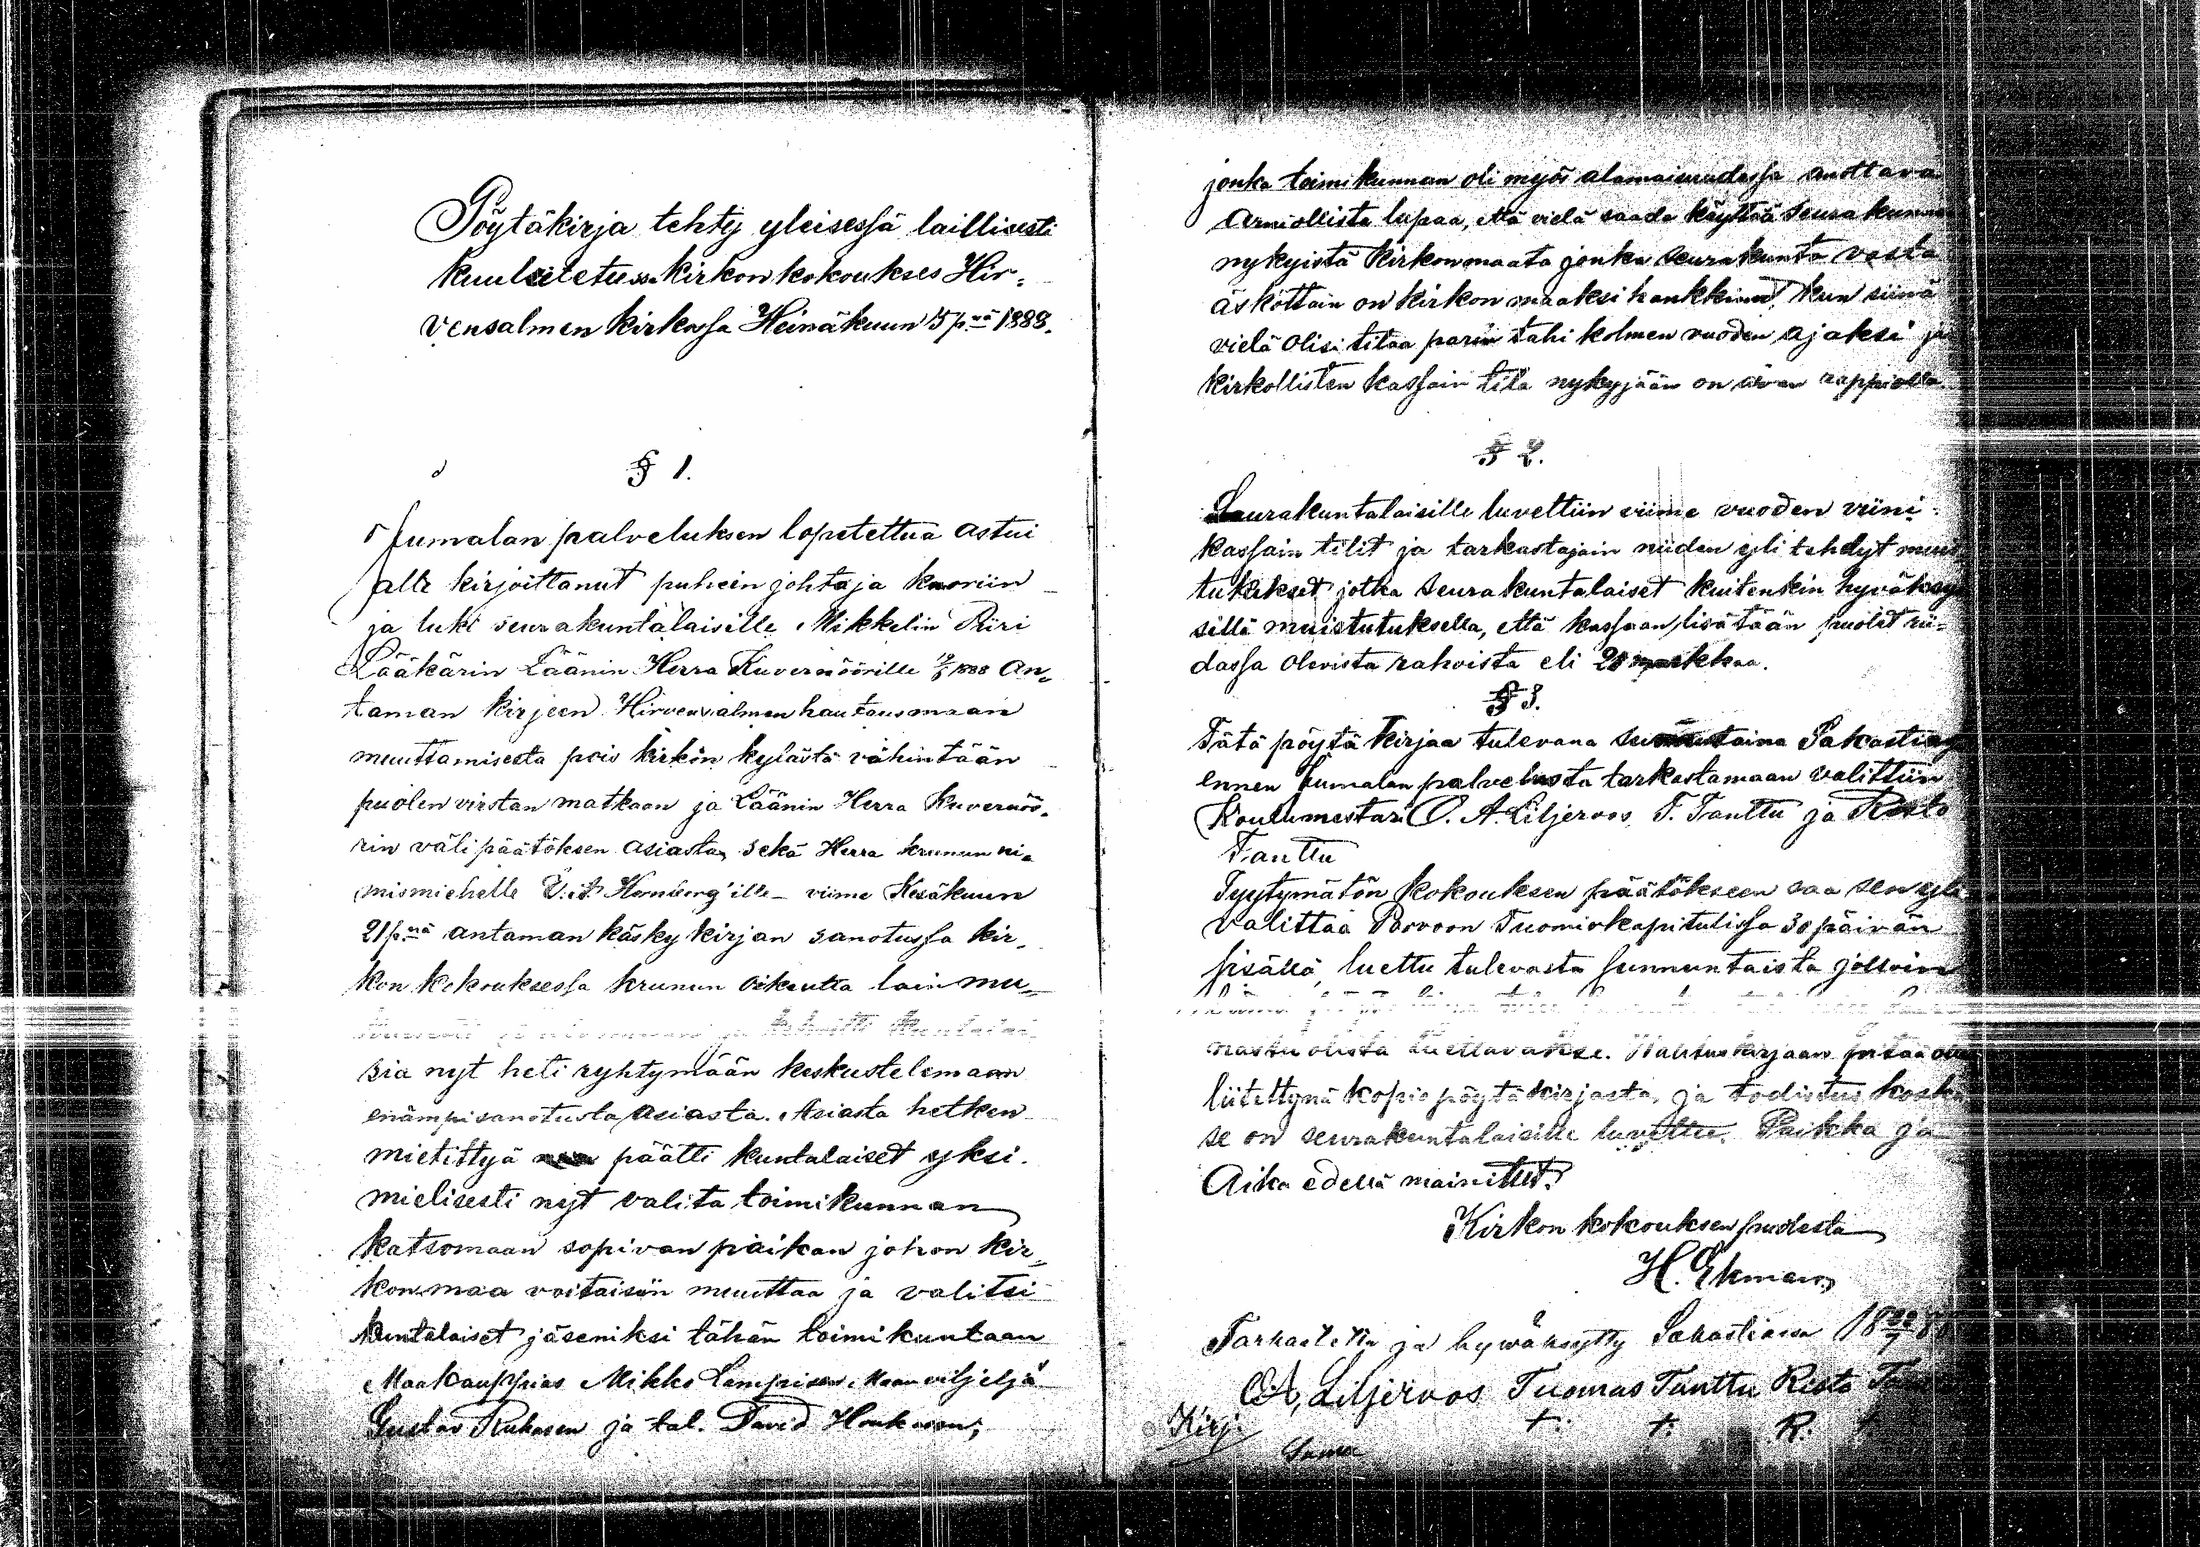 Pöytäkirja tehty yleisessä laillisesti
kuulutetussa kirkonkokoukses Hir-
vensalmen kirkossa Heinäkuun 15 p:nä 1888.
§ 1.
Jumalan palveluksen lopetettua astui
alle kirjoittanut puheenjohtaja kuoriin
ja luki seurakuntalaisille Mikkelin Piiri
Lääkärin Läänin Herra Kuvernöörille 1888 an-
taman kirjeen Hirvensalmen hautausmaan
muuttamisesta pois kirkon kylästä vähintään
puolen virstan matkaan ja Läänin Herra Kuvernöö-
rin väli päätöksen asiasta, sekä Herra krunun ni-
mismiehelle Hornborg'ille viime Kesäkuun
21 p:nä antaman käsky kirjan sanotussa kir-
kon kokouksessa krunun oikeutta lain mu-
sia nyt heti ryhtymään keskustelemaan
enämpi sanotusta asiasta. Asiasta hetken
mietittyä päätti kuntalaiset yksi-
mielisesti nyt valita toimikunnan
katsomaan sopivan paikan johon kir-
konmaa voitaisiin muuttaa ja valitsi
kuntalaiset jäseniksi tähän toimikuntaan
Maakauppias Mikko Lampisen Maanviljeljä
Gustav Ruhasen ja tal. David Honkasen;
jonka toimikunnan oli myös alamaisuudessa anottava
armollista lupaa, että vielä saada käyttää seurakunnan
nykyistä kirkonmaata jonka seurakunta vasta
äsköttäin on kirkon maaksi hankkinut kun siinä
vielä olisi titaa parin tahi kolmen vuoden ajaksi ja
kirkollisten kassain tila nykyjään on aivan rappiolla.
§ 2.
Seurakuntalaisille luvettiin viime vuoden viini-
kassain tilit ja tarkastajain niiden yli tehdyt muis
tutukset jotka seurakuntalaiset kuitenkin hyväksy
sillä muistutuksella, että kassaan lisätään puolet rii-
dassa olevista rahoista eli 28 markkaa.
§ 3.
Tätä pöytäkirjaa tulevana sunnuntaina Sakastiassa
ennen Jumalan palvelusta tarkastamaan valittiin
Koulumestari O. A. Liljeroos, T. Tanttu ja Risto
Tanttu
Tyytymätön kokouksen päätökseen saa sen yli
valittaa Porvoon Tuomiokapitulissa 30 päivän
sisällä, luettu tulevasta sunnuntaista jolloin
liitettynä kopio pöytäkirjasta, ja todistus koska
se on seurakuntalaisille luvettu. Paikka ja
Aika edellä mainitut.
Kirkon kokouksen puolesta
H. Ekman,
Tarkastettu ja hywäksytty Sakastiassa 18 22/7 88
O A, Liljeroos Tuomas Tanttu Risto
Kirj. T. T. R. T
Sama